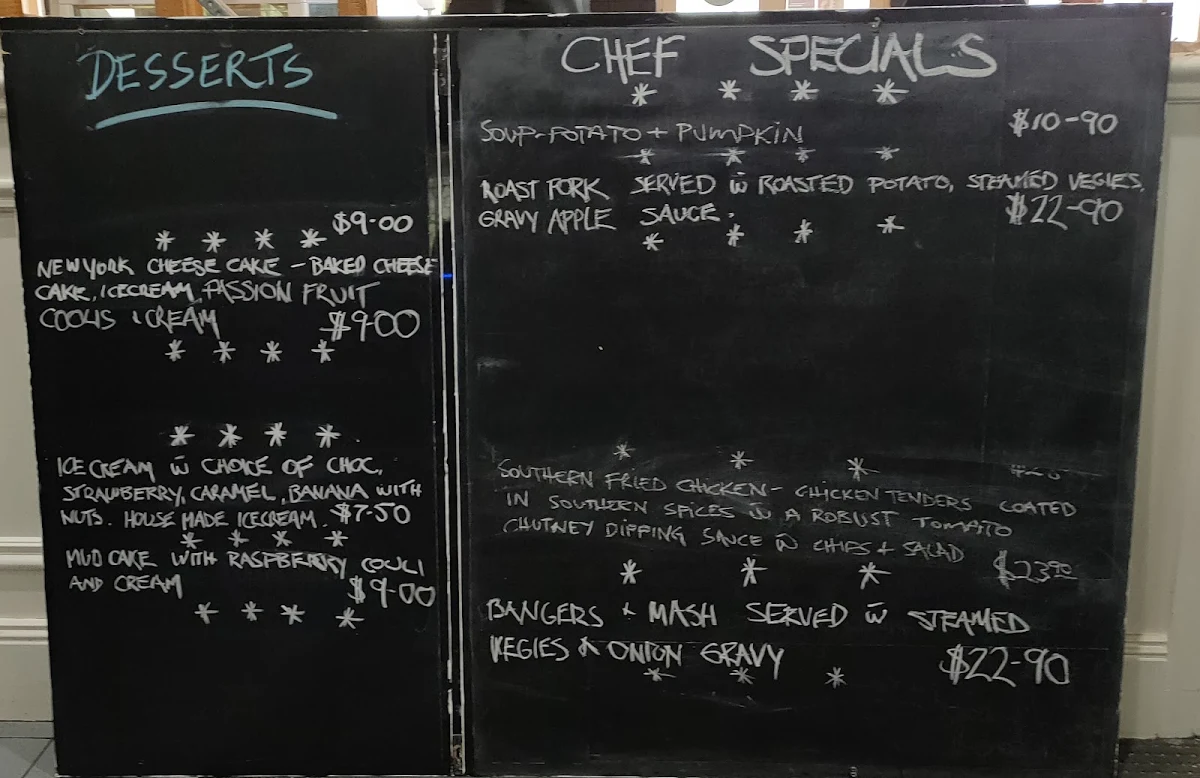 DESSERTS
* * * * $9-00
NEW YORK CHEESE CAKE - BAKED CHEESE
CAKE, ICECREAM, PASSION FRUIT
COOLIS & CREAM $9-00
* * * *
* * * *
ICE CREAM W CHOICE OF CHOC,
STRAWBERRY, CARAMEL, BANANA WITH
NUTS. HOUSE MADE ICECREAM. $7-50
* * * *
MUD CAKE WITH RASPBERRY COULI
AND CREAM $9-00
* * * *
CHEF SPECIALS
* * * *
SOUP-POTATO + PUMPKIN $10-90
* * * *
ROAST PORK SERVED W ROASTED POTATO, STEAMED VEGIES,
GRAVY APPLE SAUCE. $22-90
* * * *
* * *
SOUTHERN FRIED CHICKEN - CHICKEN TENDERS COATED
IN SOUTHERN SPICES W A ROBUST TOMATO
CHUTNEY DIPPING SAUCE W CHIPS + SALAD $23.90
* * *
BANGERS + MASH SERVED W STEAMED
VEGIES & ONION GRAVY $22-90
* * *